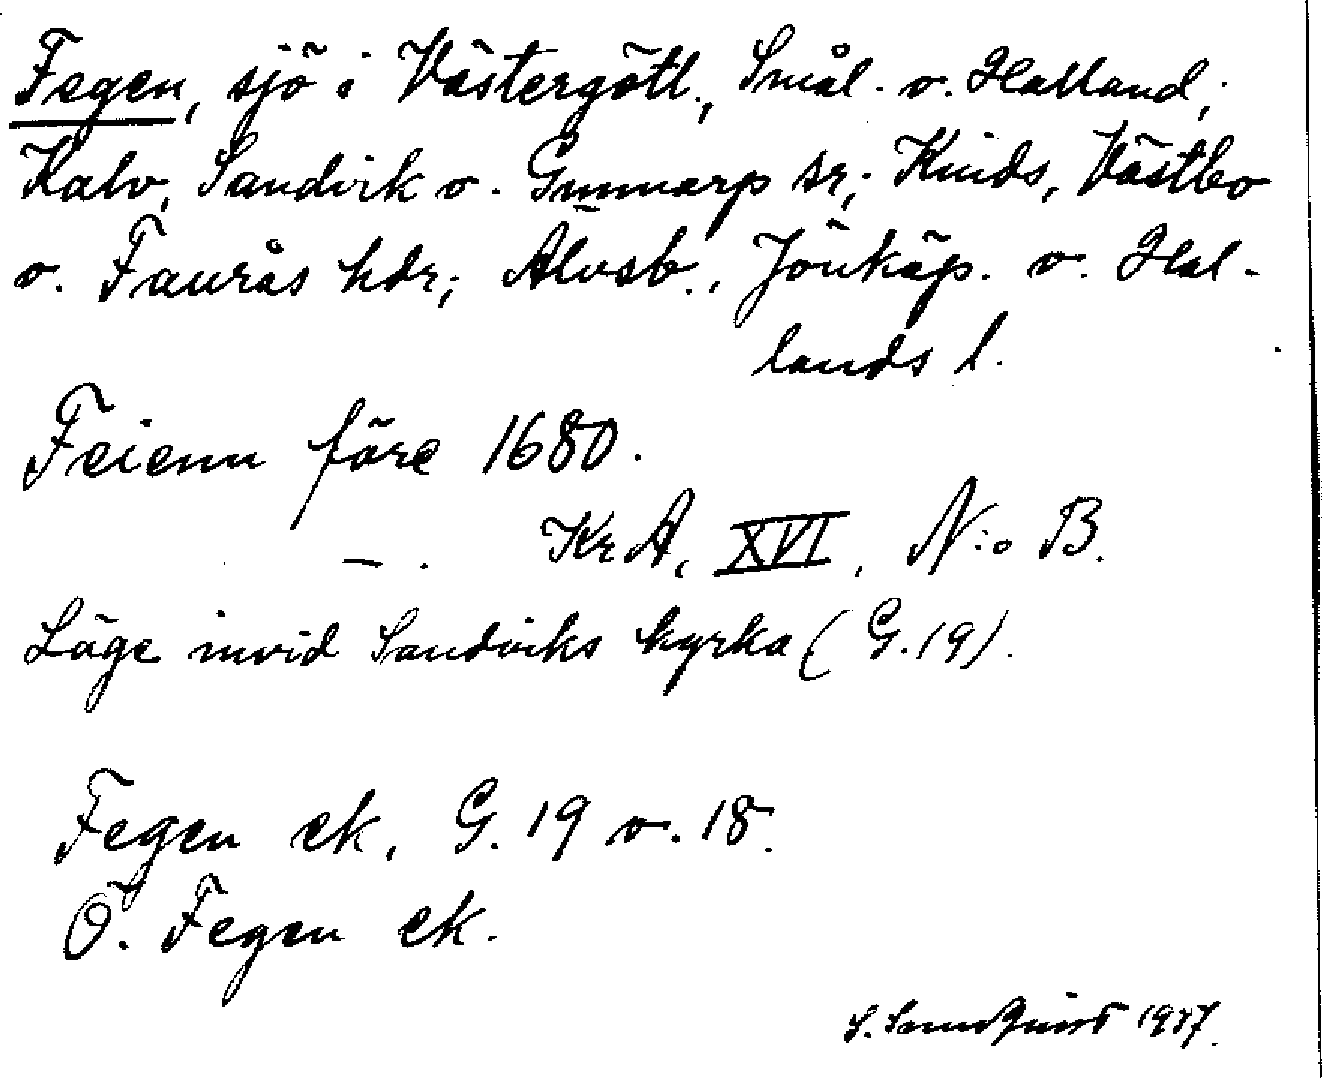 Fegen, sjö i Västergötl., Smål. o. Halland;
Kalv, Sandvik o. Gunnarp sr; Kinds, Västbo
o. Faurås hdr; Älvsb., Jönköp. o. Hal-
lands l.
Feienn före 1680.
—. KrA, XVI, N:o B.
Läge invid Sandviks kyrka (G. 19).
Fegen ek, G. 19 o. 18.
Ö. Fegen ek.